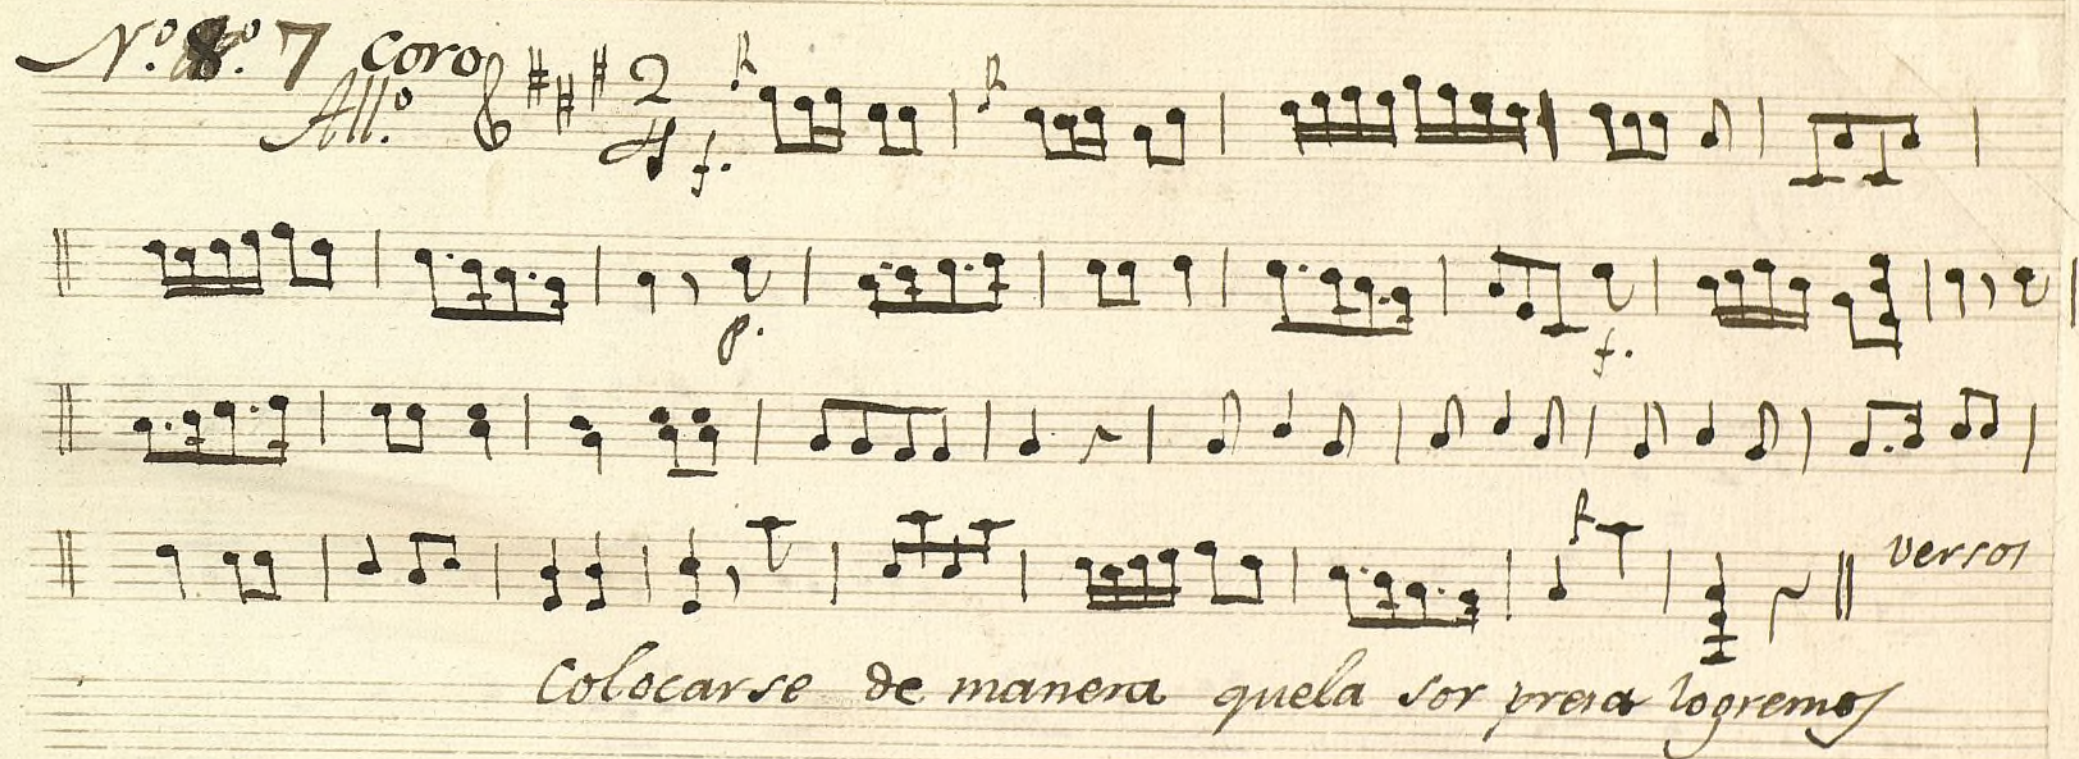 Nº 8º. 7 Coro
All.º
2
4
f.
p. f.
versos
Colocarse de manera quela sor presa logremos